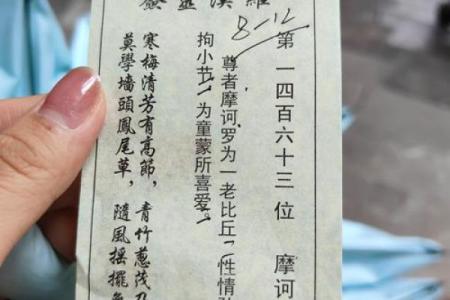 羅漢靈簽
8-12
第一四百六十三位 摩诃
尊者摩诃罗为一老比丘，性情
拘小节，为童蒙所喜爱。
寒梅清芳有高節，青竹蔥茂乃
莫學墻頭鳳尾草，隨風搖擺